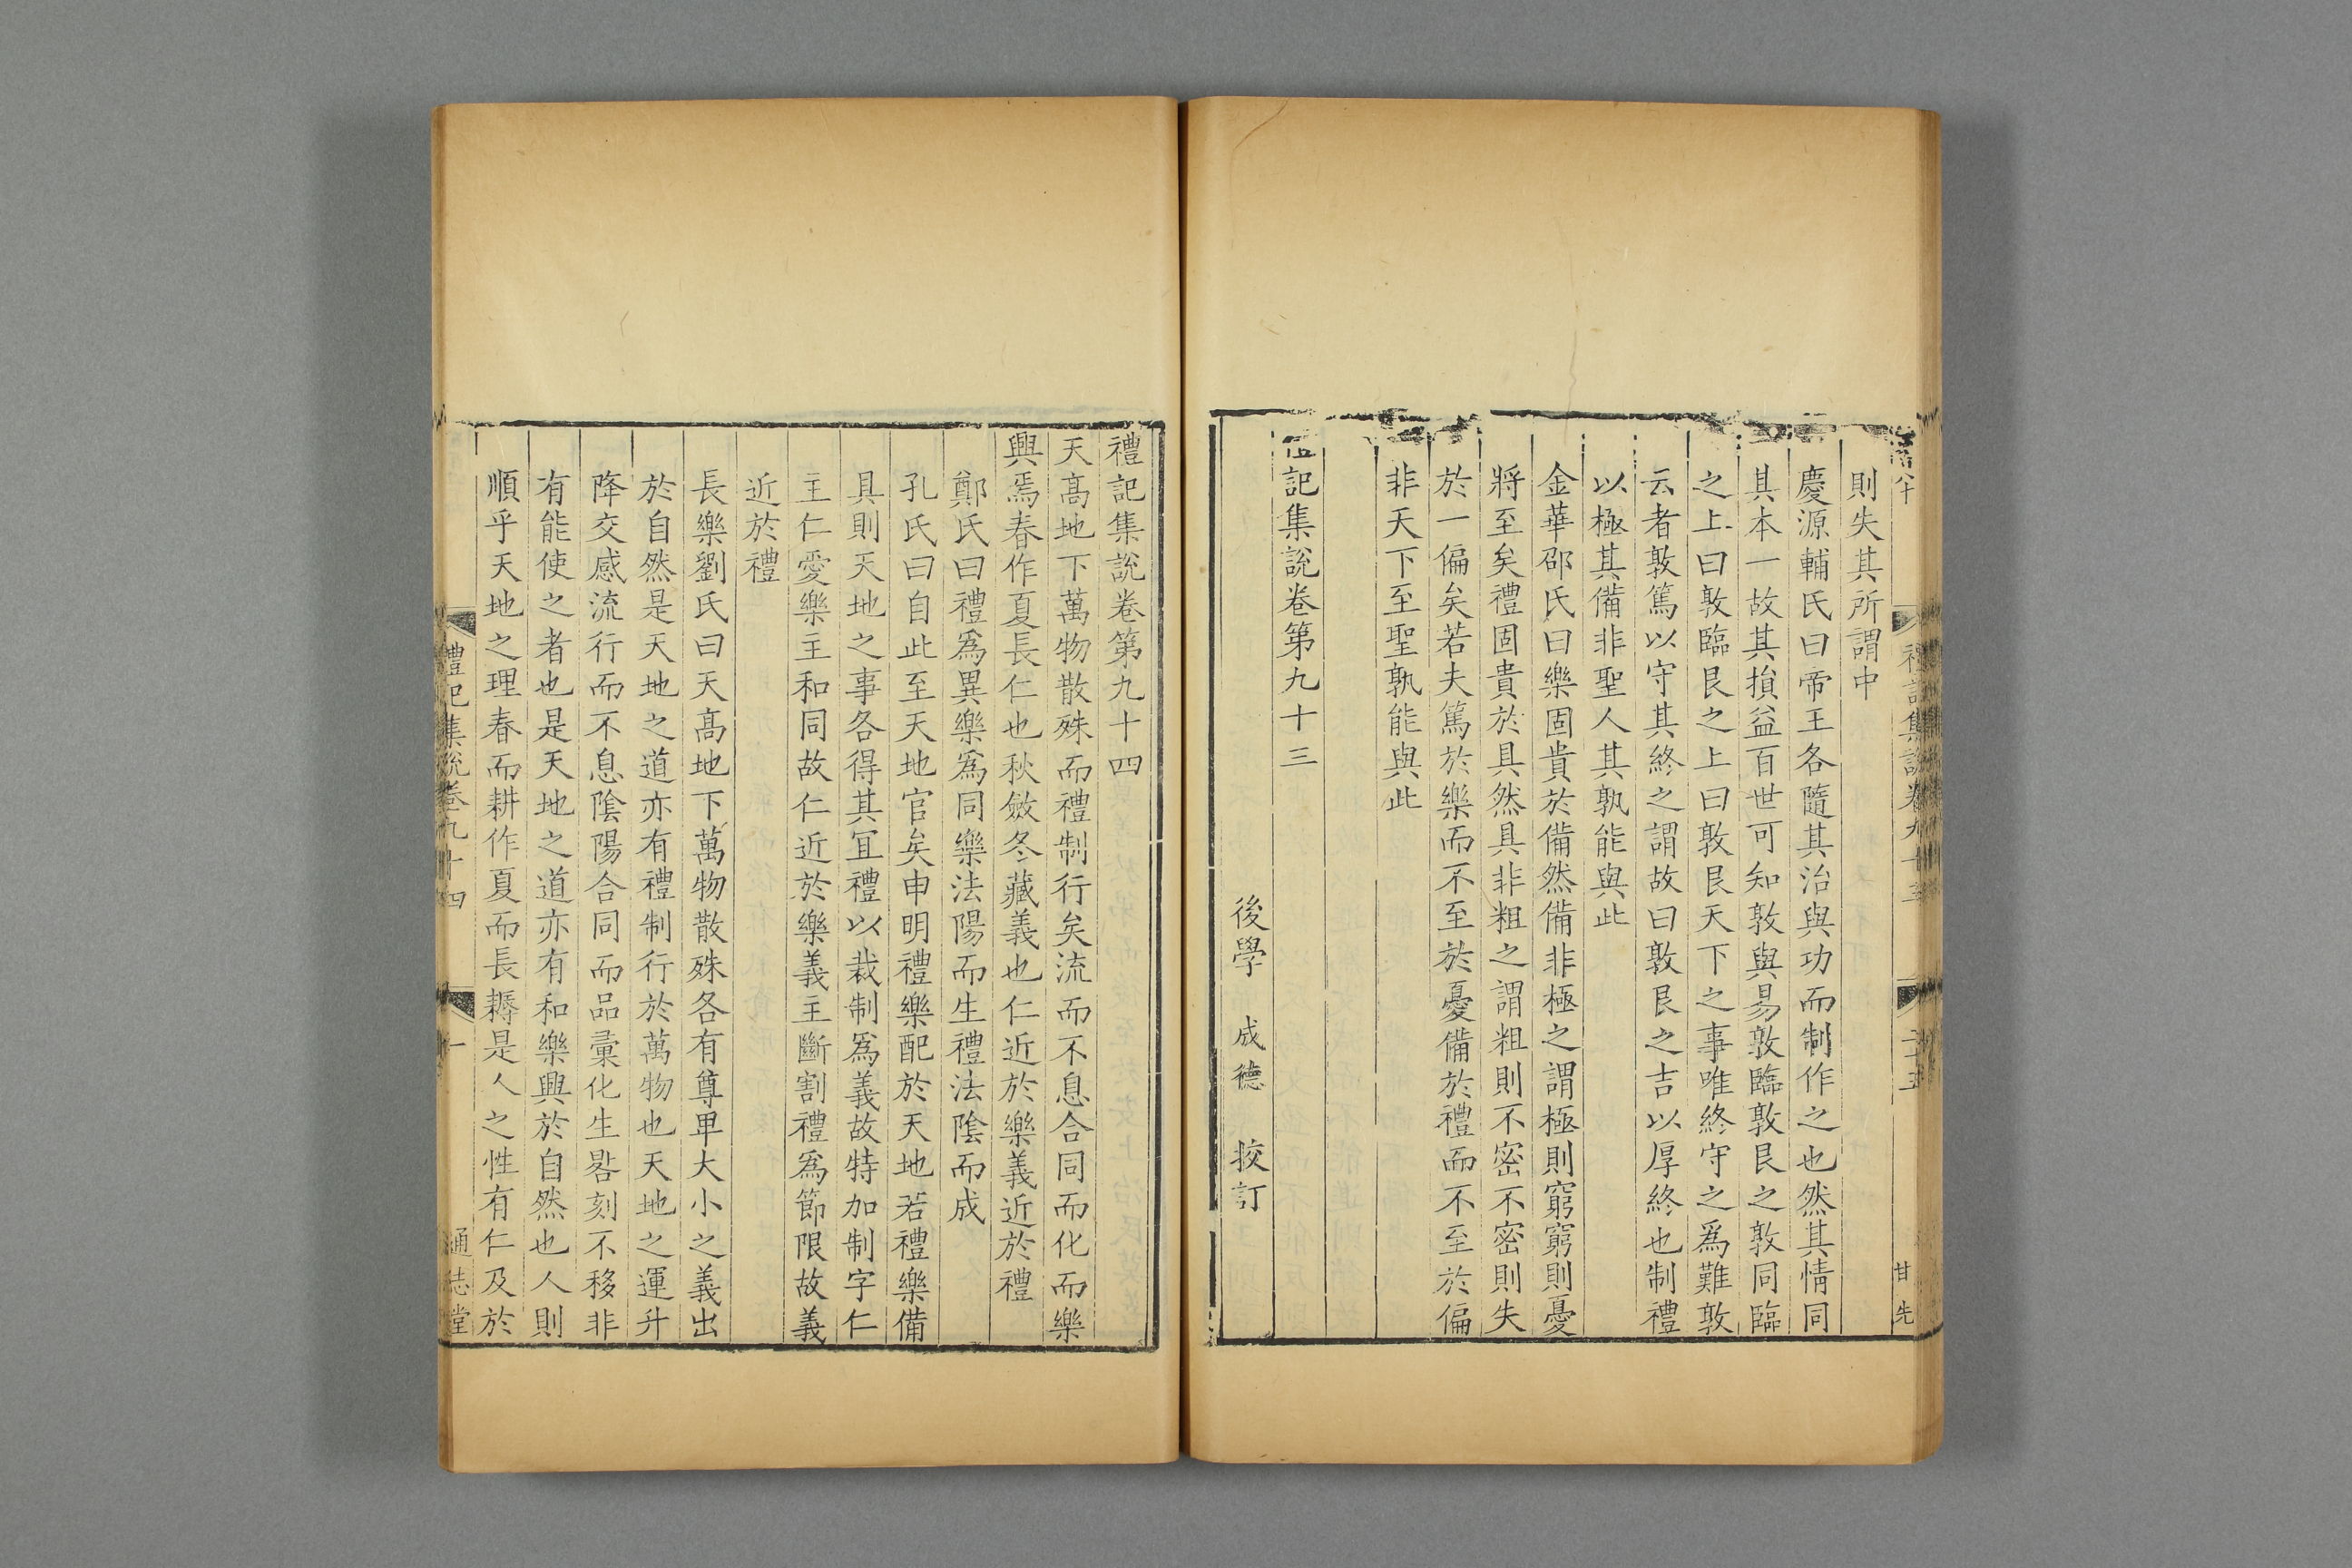 則失其所謂中
慶源輔氏曰帝王各隨其治與功而制作之也然其情同
其本一故其損益百世可知敦與易敦臨敦艮之敦同臨
之上曰敦臨艮之上曰敦艮天下之事唯終守之爲難敦
云者敦篤以守其終之謂故曰敦艮之吉以厚終也制禮
以極其備非聖人其孰能與此
金華邵氏曰樂固貴於備然備非極之謂極則窮窮則憂
將至矣禮固貴於具然具非粗之謂粗則不密不密則失
於一偏矣若夫篤於樂而不至於憂備於禮而不至於偏
非天下至聖孰能與此
禮記集說卷第九十三
後學 成德 挍訂
禮記集說卷第九十四
天髙地下萬物散殊而禮制行矣流而不息合同而化而樂
興焉春作夏長仁也秋斂冬藏義也仁近於樂義近於禮
鄭氏曰禮爲異樂爲同樂法陽而生禮法陰而成
孔氏曰自此至天地官矣申明禮樂配於天地若禮樂備
具則天地之事各得其冝禮以裁制爲義故特加制字仁
主仁愛樂主和同故仁近於樂義主斷割禮爲節限故義
近於禮
長樂劉氏曰天髙地下萬物散殊各有尊卑大小之義出
於自然是天地之道亦有禮制行於萬物也天地之運升
降交感流行而不息陰陽合同而品彙化生晷刻不移非
有能使之者也是天地之道亦有和樂興於自然也人則
順乎天地之理春而耕作夏而長耨是人之性有仁及於
禮記集說卷九十四
一
通志堂